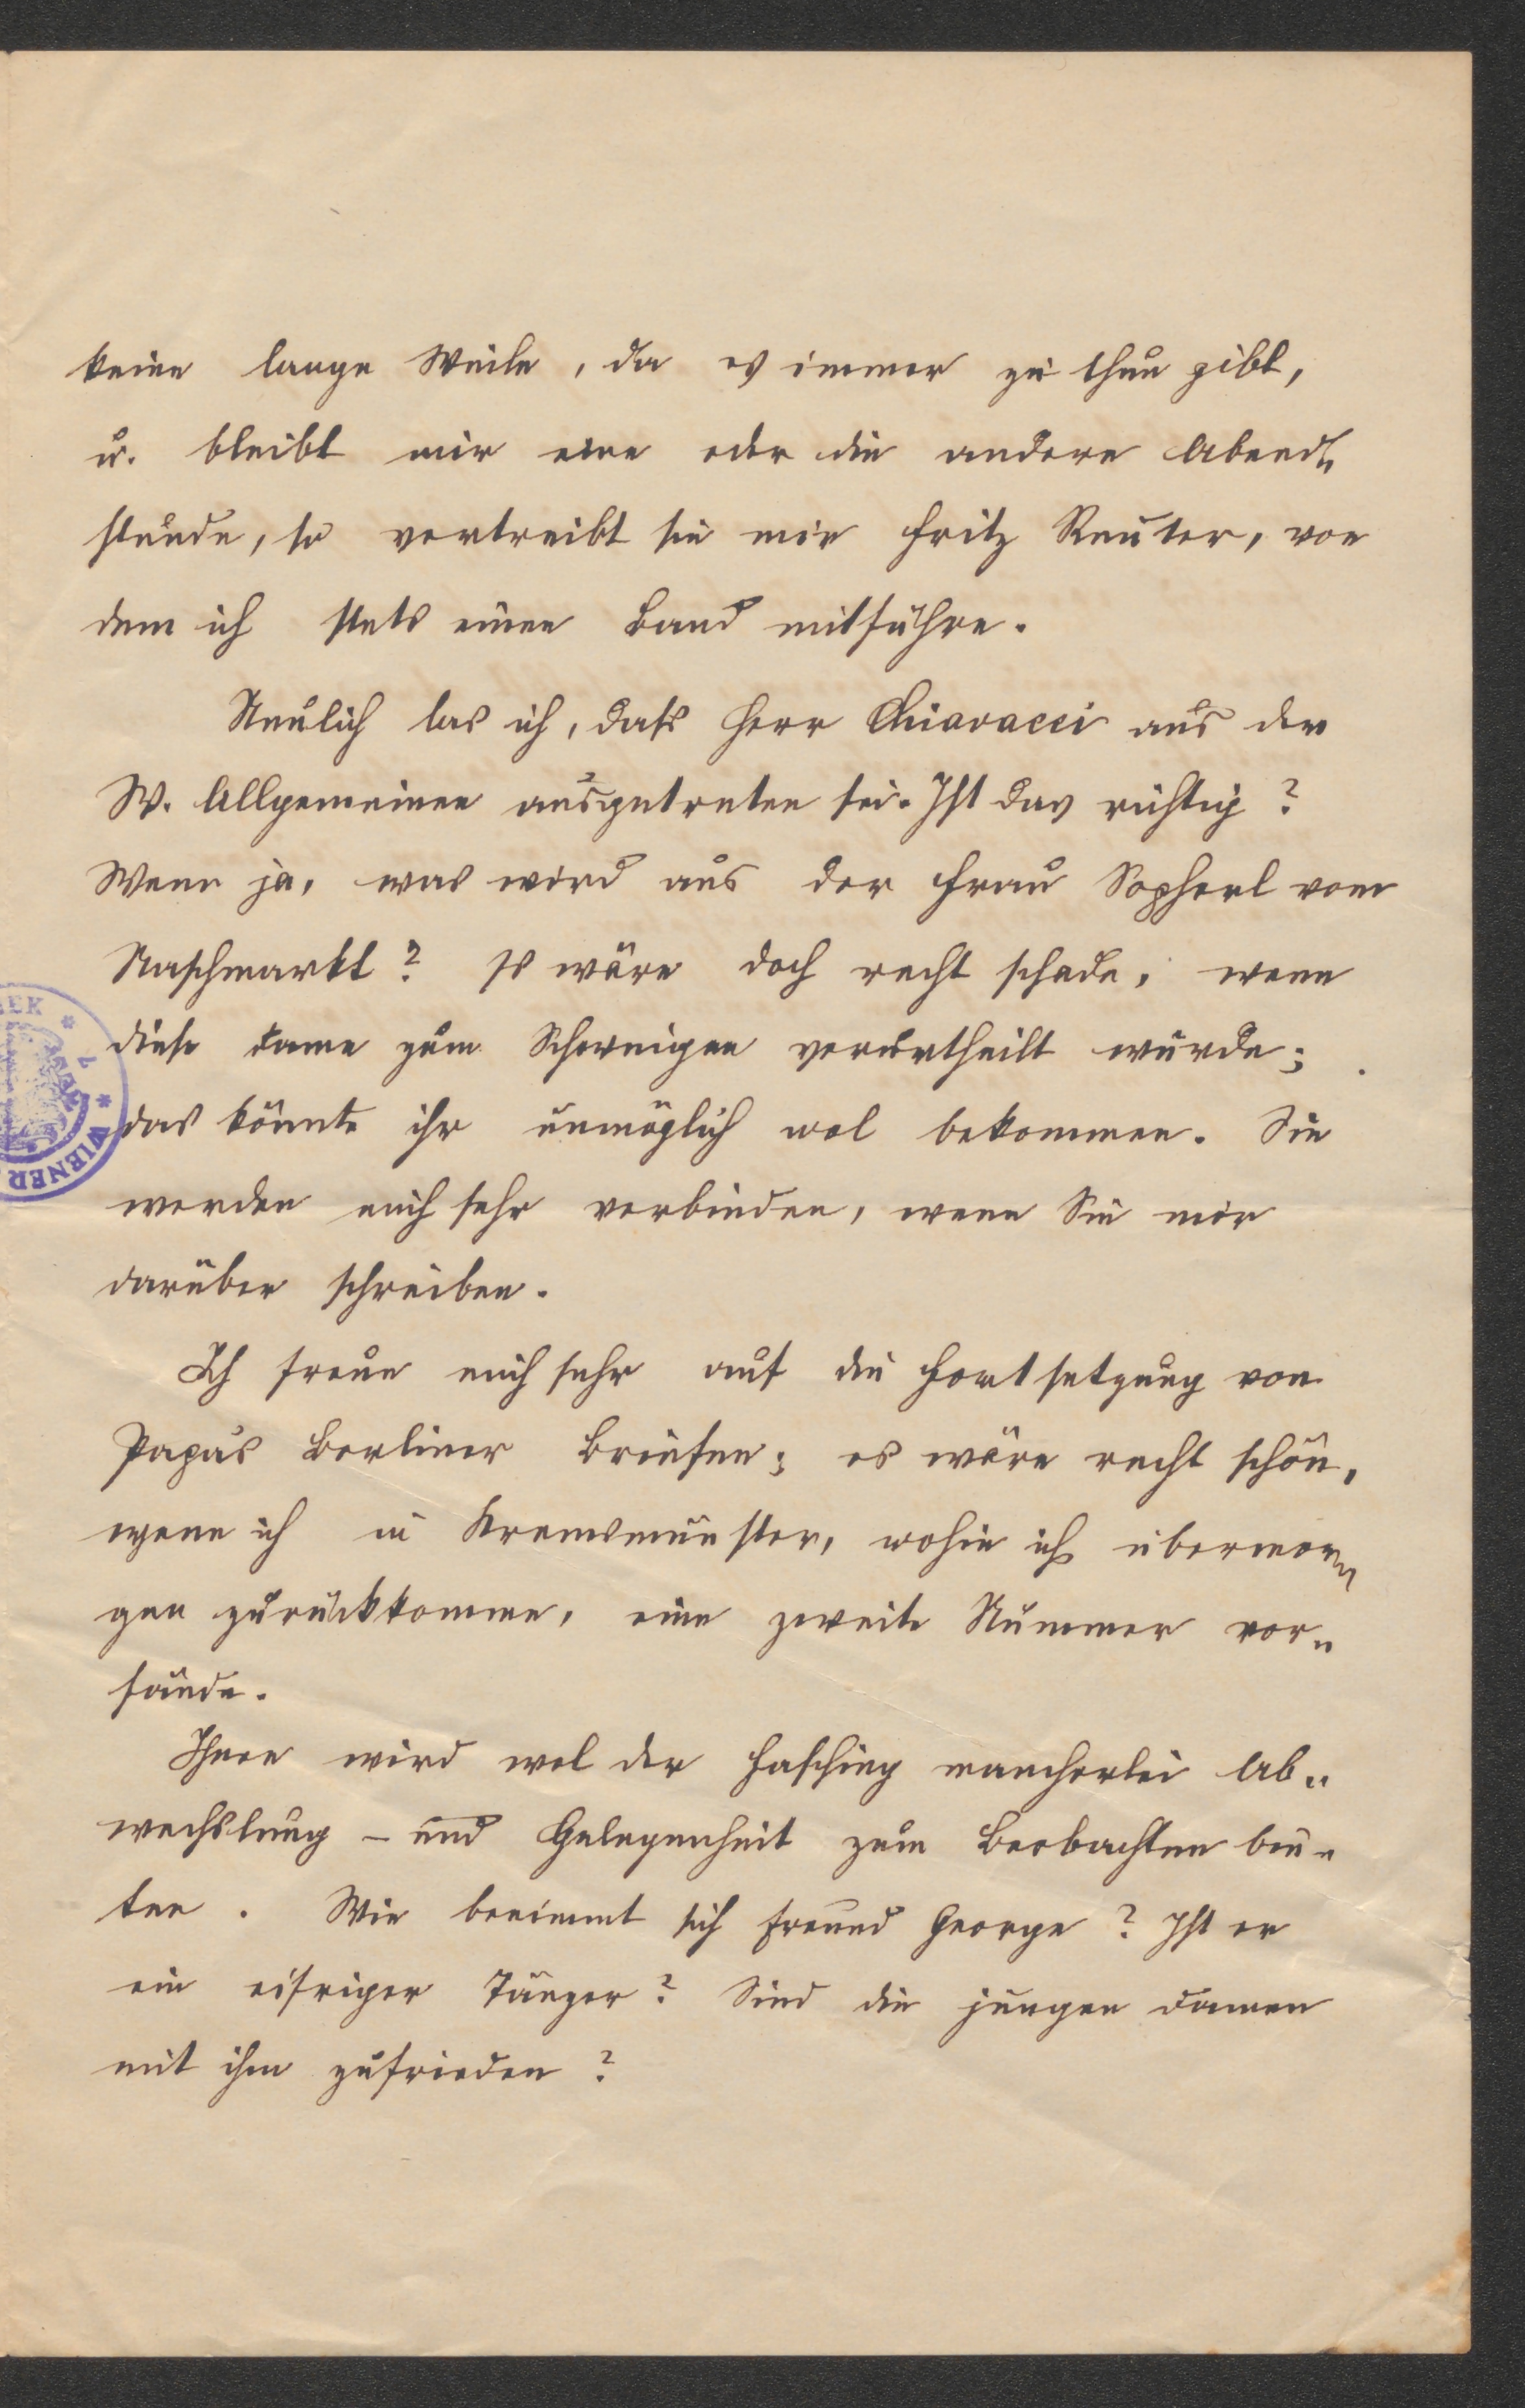 keine lange Weile, da es immer zu thun gibt,
u. bleibt mir eine oder die andere Abend-
stunde, so vertreibt sie mir Fritz Reuter, von
dem ich stets einen Band mitführe.
Neulich las ich, daß Herr Chiavacci aus der
W. Allgemeinen ausgetreten sei. Ist das richtig?
Wenn ja, was wird aus der Frau Sopherl vom
Naschmarkt? Es wäre doch recht schade, wenn
diese Dame zum Schweigen verurtheilt würde;
das könnte ihr unmöglich wol bekommen. Sie
werden mich sehr verbinden, wenn Sie mir
darüber schreiben.
Ich freue mich sehr auf die Fortsetzung von
Papas Berliner Briefen; es wäre recht schön,
wenn ich in Kremsmünster, wohin ich übermor-
gen zurückkomme, eine zweite Nummer vor-
fände.
Ihnen wird wol der Fasching mancherlei Ab-
wechslung – und Gelegenheit zum Beobachten bie-
ten. Wie benimmt sich Freund George? Ist er
ein eifriger Tänzer? Sind die jungen Damen
mit ihm zufrieden?
WIENER